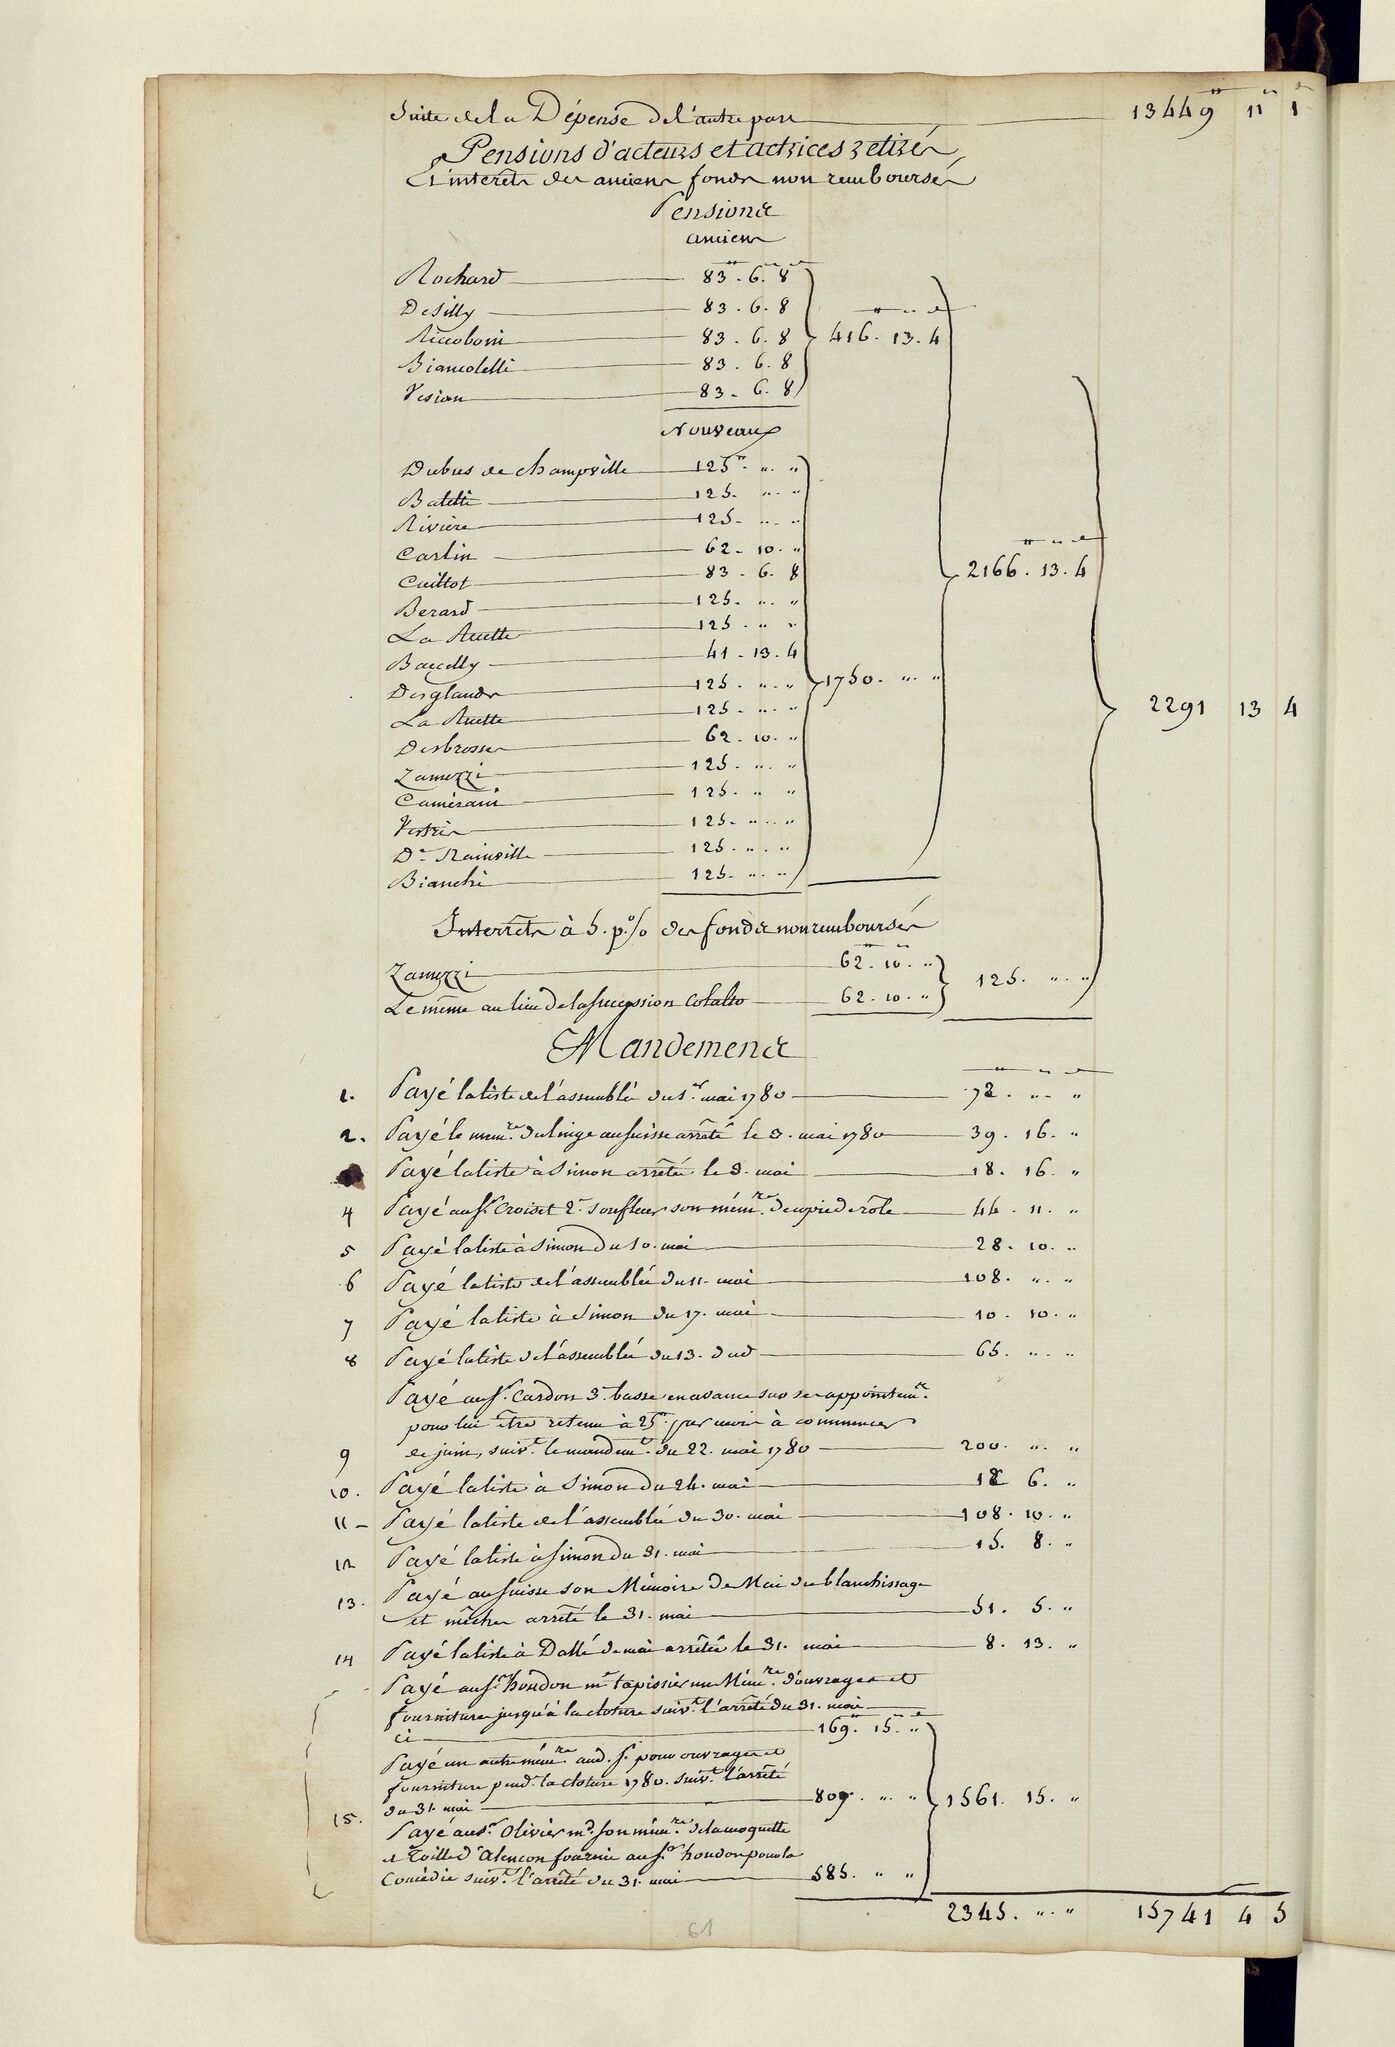 Suite de la Dépense de l'autre part 13449 11 1
Pensions d'acteurs et actrices retirés
Et interêts des anciens fonds non remboursés
Pensions
anciens
Rochard 83. 6. 8
Desilly 83. 6. 8
Riccoboni 83. 6. 8 416. 13. 4
Biancolelli 83. 6. 8
Vesian 83. 6. 8
Nouveaux
Dubus de champville 125. " "
Baletti 125. " "
Rivière 125. " "
Carlin 62. 10. "
Caillot 83. 6. 8 2166. 13. 4
Berard 125. " "
La Ruette 125. " "
Baccelly 41. 13. 4
Desglands 125. " " 1750. " " 2291 13 4
La Ruette 125. " "
Desbrosses 62. 10. "
Zanuzzi 125. " "
Camérani 125. " "
Vestris 125. " "
De Rainville 125. " "
Bianchi 125. " "
Interrêts à 5. p.% des fonds non remboursés
Zanuzzi 62. 10. "
Le même au lieu de la succession Colalto 62. 10. " 125. " "
Mandemens
1. Payé la liste de l'assemblée du 1er mai 1780 72. " "
2. Payé le mémre du linge au suisse arrêté le 3. mai 1780 39. 16. "
Payé la liste à Simon arrêtée le 3. mai 18. 16. "
4 Payé au Sr Croiset 2e souffleur son mémre de copie de rôle 44. 11. "
5 Payé la liste à Simon du 10. mai 28. 10. "
6 Payé la liste de l'assemblée du 11. mai 108. " "
7 Payé la liste à Simon du 17. mai 10. 10. "
8 Payé la liste de l'assemblée du 13. dud 65. " "
Payé au Sr Cardon 3e basse en avance sur ses appointemts
pour lui être retenu à 25tt par mois à commencer
9 de juin, suivt le mandemt du 22. mai 1780 200. " "
10. Payé la liste à Simon du 24. mai 18 6. "
11 - Payé la liste de l'assemblée du 30. mai 108. 10. "
12 Payé la liste à Simon du 31. mai 15. 8. "
13. Payé au suisse son Mémoire de Mai du blanchissage
et mêches arrêté le 31. mai 51. 5. "
14 Payé la liste à Dallé de mai arrêtée le 31. mai 8. 13. "
Payé au Sr houdon md tapissier un Mémre d'ouvrages et
fournitures jusqu'à la cloture suivt l'arrêté du 31. mai
ci 169. 15. "
Payé un autre mémre aud. Sr pour ouvrages et
fourniture pendt la cloture 1780. suivt l'arrêté
du 31. mai 807. " " 1561. 15. "
15. Payé au Sr Olivier md son mémre de la moquette
et Toille d'Alençon fournie au Sr houdon pour la
Comédie suivt l'arrêté du 31. mai 585. " "
2345. " " 15741 4 5
61